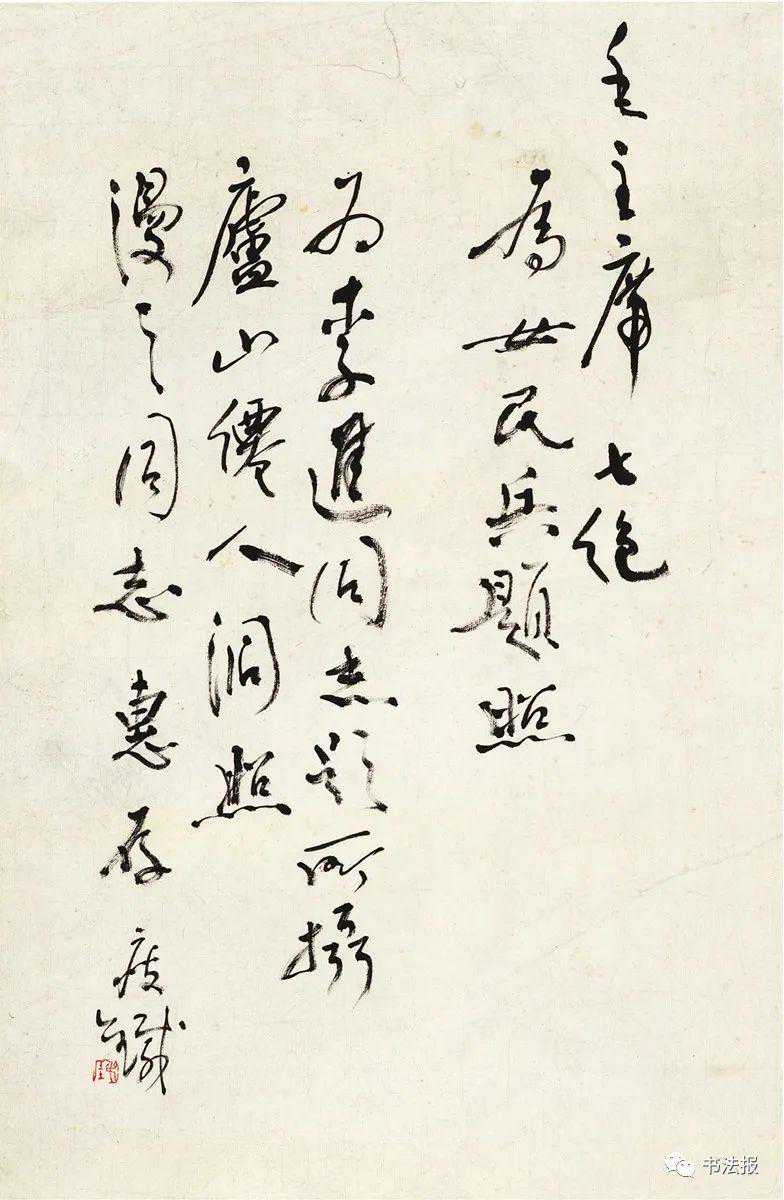 毛主席 七绝
为女民兵题照
为李進同志题所攝
廬山僊人洞照
漫之同志惠存 疲鐵
书法报